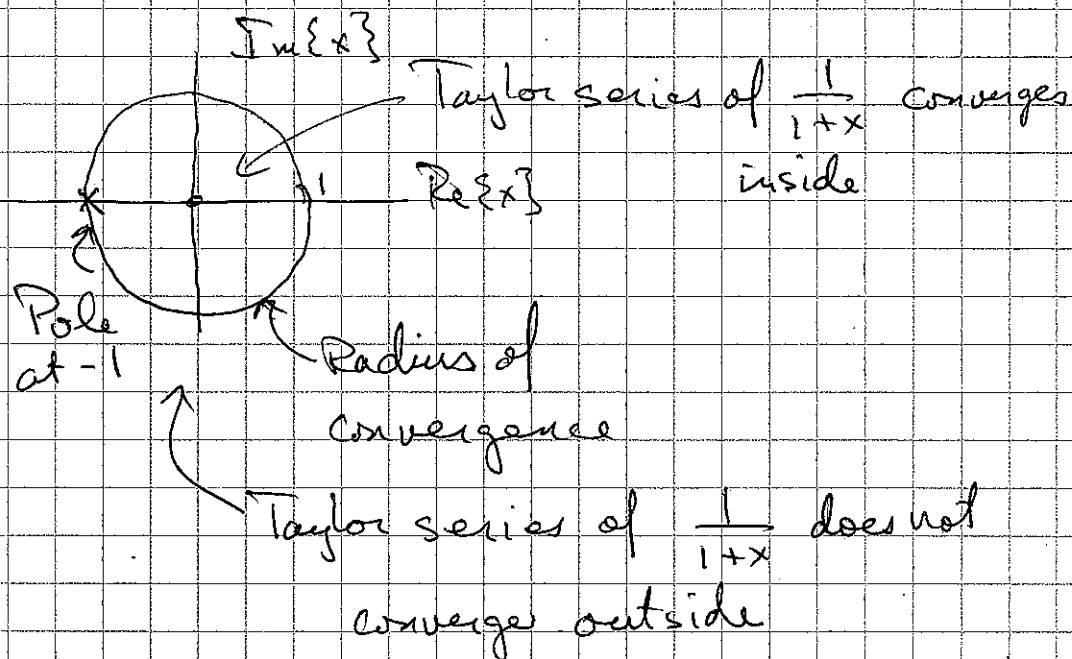 Im{x}
Taylor series of 1/(1+x) converges
inside
1
Re{x}
Pole
at -1
Radius of
convergence
Taylor series of 1/(1+x) does not
converge outside